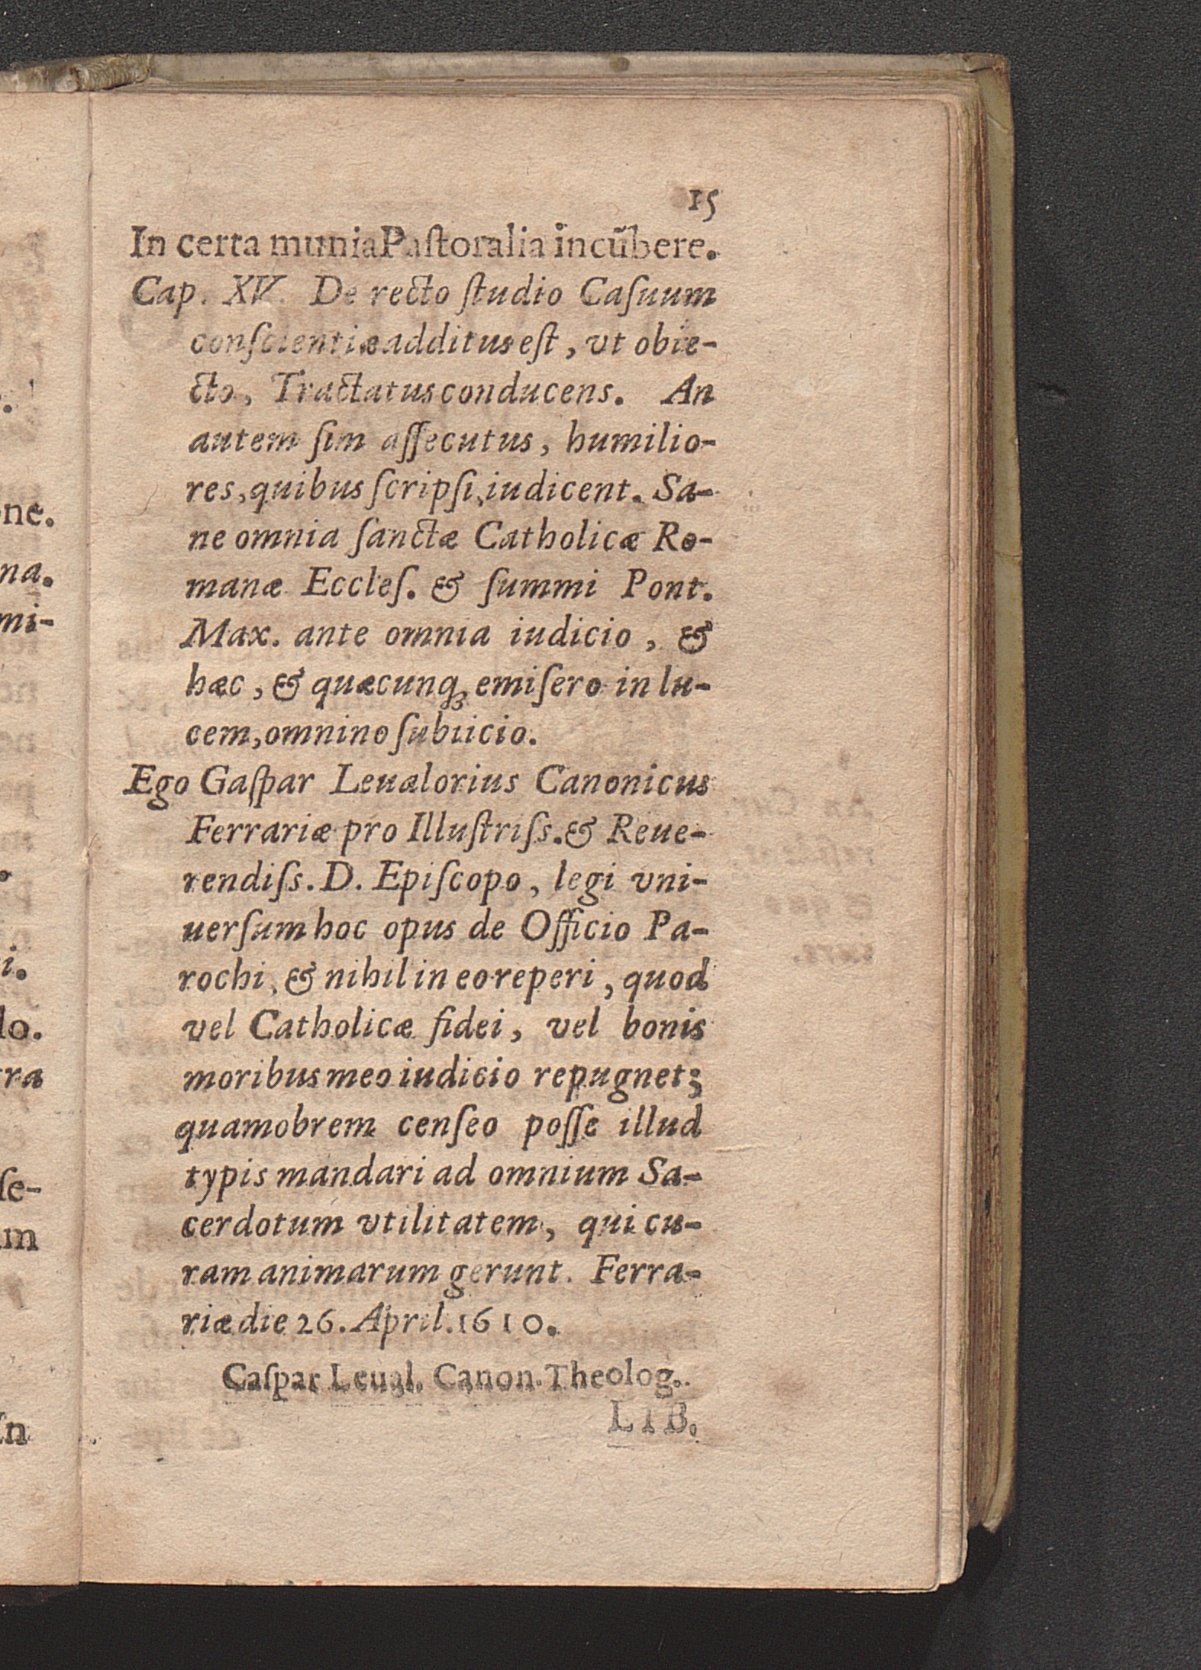 15
In certa munia Paſtoralia incūbere.
Cap. XV. De recto ſtudio Caſuum
conſcientiæ additus eſt, vt obie-
cto, Tractatus conducens. An
autem ſim aſſecutus, humilio-
res, quibus ſcripſi, iudicent. Sa-
ne omnia ſanctæ Catholicæ Ro-
manæ Eccleſ. & ſummi Pont.
Max. ante omnia iudicio, &
hæc, & quæcunq; emiſero in lu-
cem, omnino ſubiicio.
Ego Gaſpar Leualorius Canonicus
Ferrariæ pro Illuſtriſs. & Reue-
rendiſs. D. Epiſcopo, legi vni-
uerſum hoc opus de Officio Pa-
rochi, & nihil in eo reperi, quod
vel Catholicæ fidei, vel bonis
moribus meo iudicio repugnet;
quamobrem cenſeo poſſe illud
typis mandari ad omnium Sa-
cerdotum vtilitatem, qui cu-
ram animarum gerunt. Ferra-
riæ die 26. April. 1610.
Caſpar Leual. Canon. Theolog.
LIB.